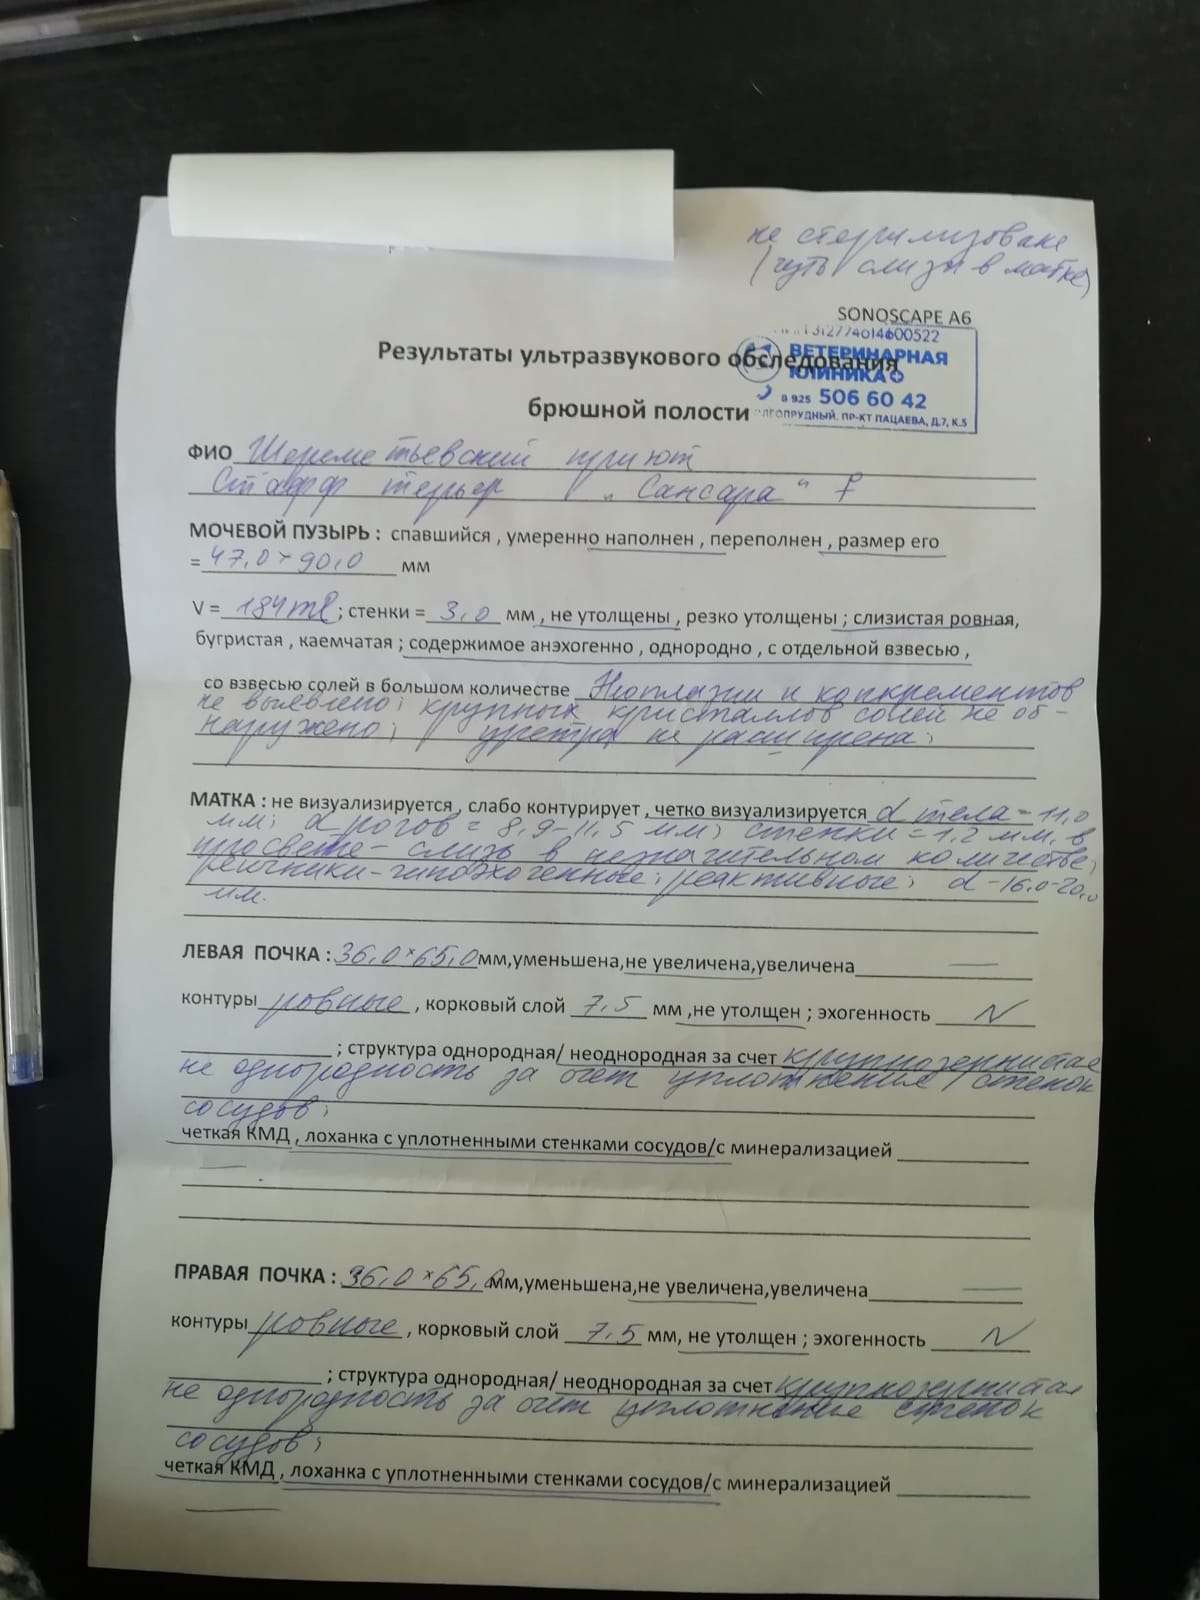 не стерилизована
(чуть слизи в матке)
SONOSCAPE A6
312774614600522
ВЕТЕРИНАРНАЯ
КЛИНИКА
8 925 506 60 42
ЛГОПРУДНЫЙ, ПР-КТ ПАЦАЕВА, Д.7, К.5
Результаты ультразвукового обследования
брюшной полости
ФИО Шереметьевский приют
Стафф терьер "Сансара" ♀
МОЧЕВОЙ ПУЗЫРЬ : спавшийся , умеренно наполнен , переполнен , размер его
= 47,0 × 90,0 мм
V = 184 ml ; стенки = 3,0 мм , не утолщены , резко утолщены ; слизистая ровная,
бугристая , каемчатая ; содержимое анэхогенно , однородно , с отдельной взвесью ,
со взвесью солей в большом количестве Неоплазии и конкрементов
не выявлено; крупных кристаллов солей не об-
наружено; уретра не расширена;
МАТКА : не визуализируется , слабо контурирует , четко визуализируется d тела = 11,0
мм; d рогов = 8,9-11,5 мм; стенки = 1,2 мм, в
просвете - слизь в незначительном количестве;
яичники - гипоэхогенные; реактивные; d - 16,0-20,0
мм.
ЛЕВАЯ ПОЧКА : 36,0 × 65,0 мм,уменьшена,не увеличена,увеличена —
контуры ровные , корковый слой 7,5 мм ,не утолщен ; эхогенность N
; структура однородная/ неоднородная за счет крупнозернистая
не однородность за счет уплотнение стенок
сосудов;
четкая КМД , лоханка с уплотненными стенками сосудов/с минерализацией
—
ПРАВАЯ ПОЧКА : 36,0 × 65,0 мм,уменьшена,не увеличена,увеличена —
контуры ровные , корковый слой 7,5 мм, не утолщен ; эхогенность N
; структура однородная/ неоднородная за счет крупнозернистая
не однородность за счет уплотнение стенок
сосудов;
четкая КМД , лоханка с уплотненными стенками сосудов/с минерализацией
—